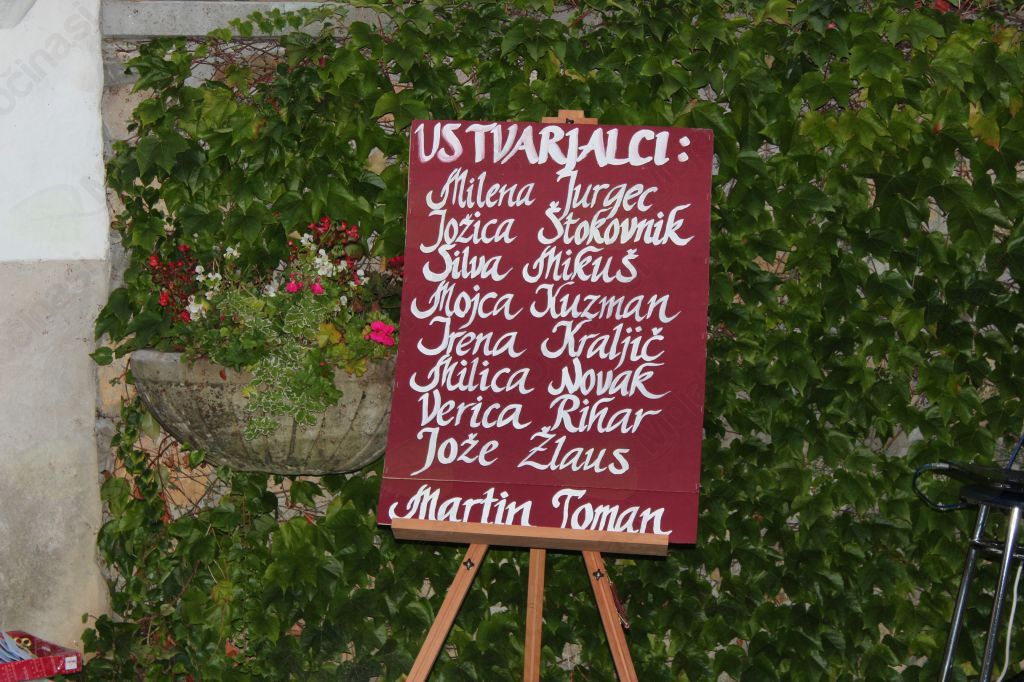 USTVARJALCI:
Milena Jurgec
Jožica Štokovnik
Silva Mikuš
Mojca Kuzman
Irena Kraljič
Milica Novak
Verica Rihar
Jože Žlaus
Martin Toman